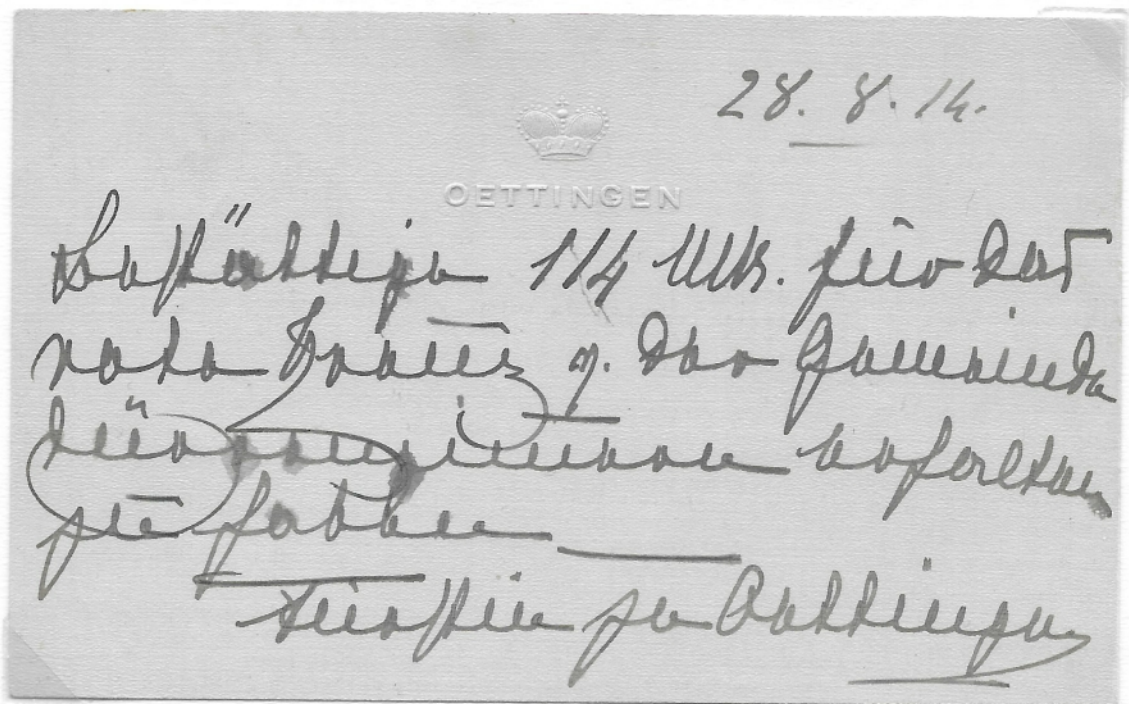 28. 8. 14.
OETTINGEN
Bestättige 114 Mk. für das
rote Kreuz v. der Gemeinde
Dürrenzimmern erhalten
zu haben
Fürstin zu Oettingen